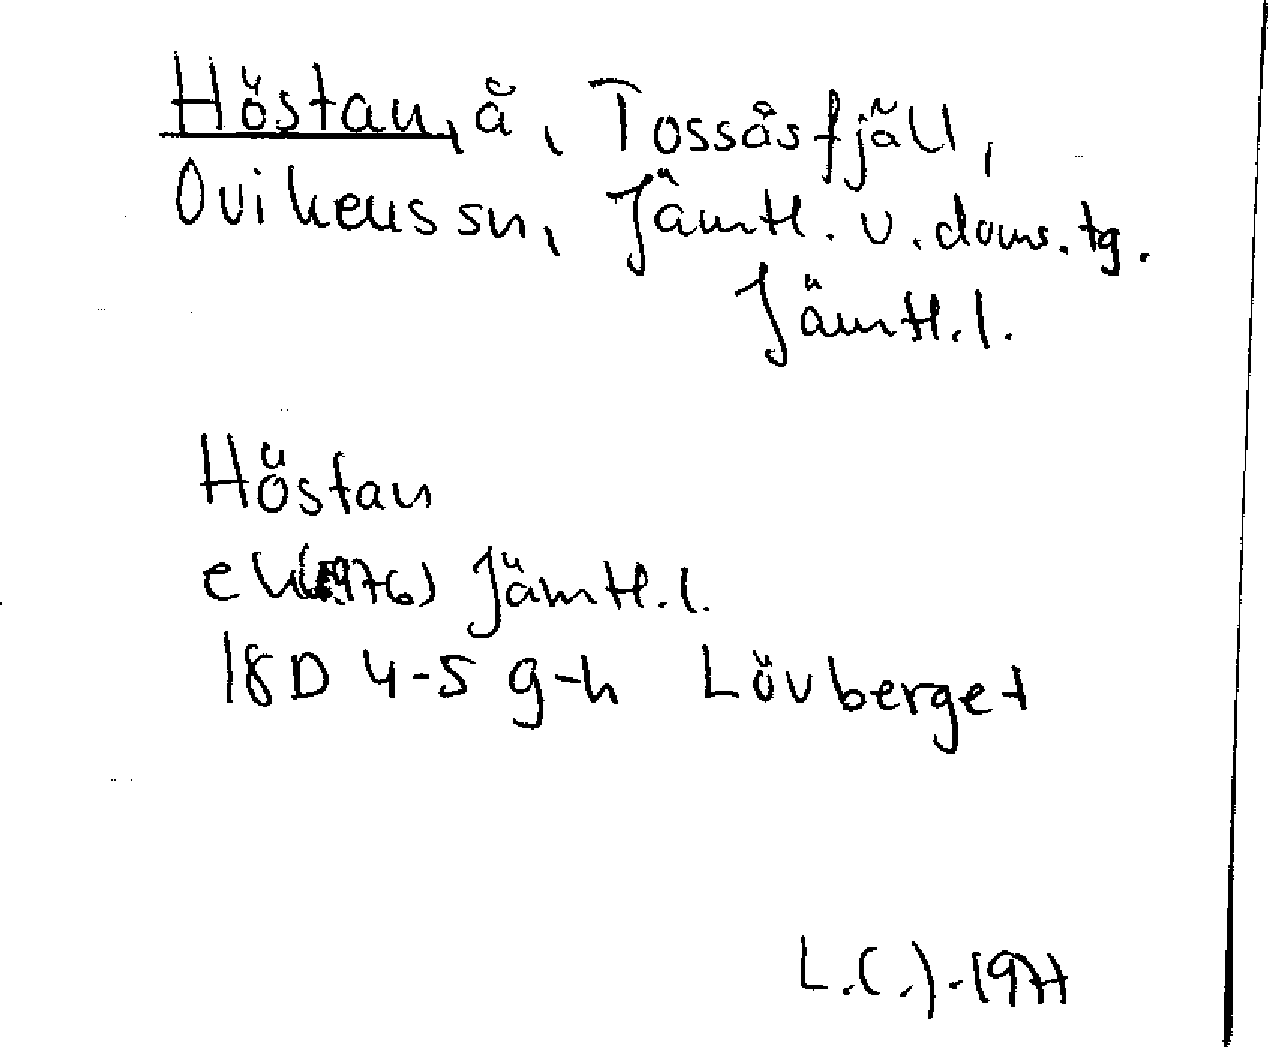 Höstan, å, Tossåsfjäll,
Ovikens sn, Jämtl. v. doms. tg.
Jämtl. l.
Höstan
ek (1976) Jämtl. l.
18D 4-5 g-h Lövberget